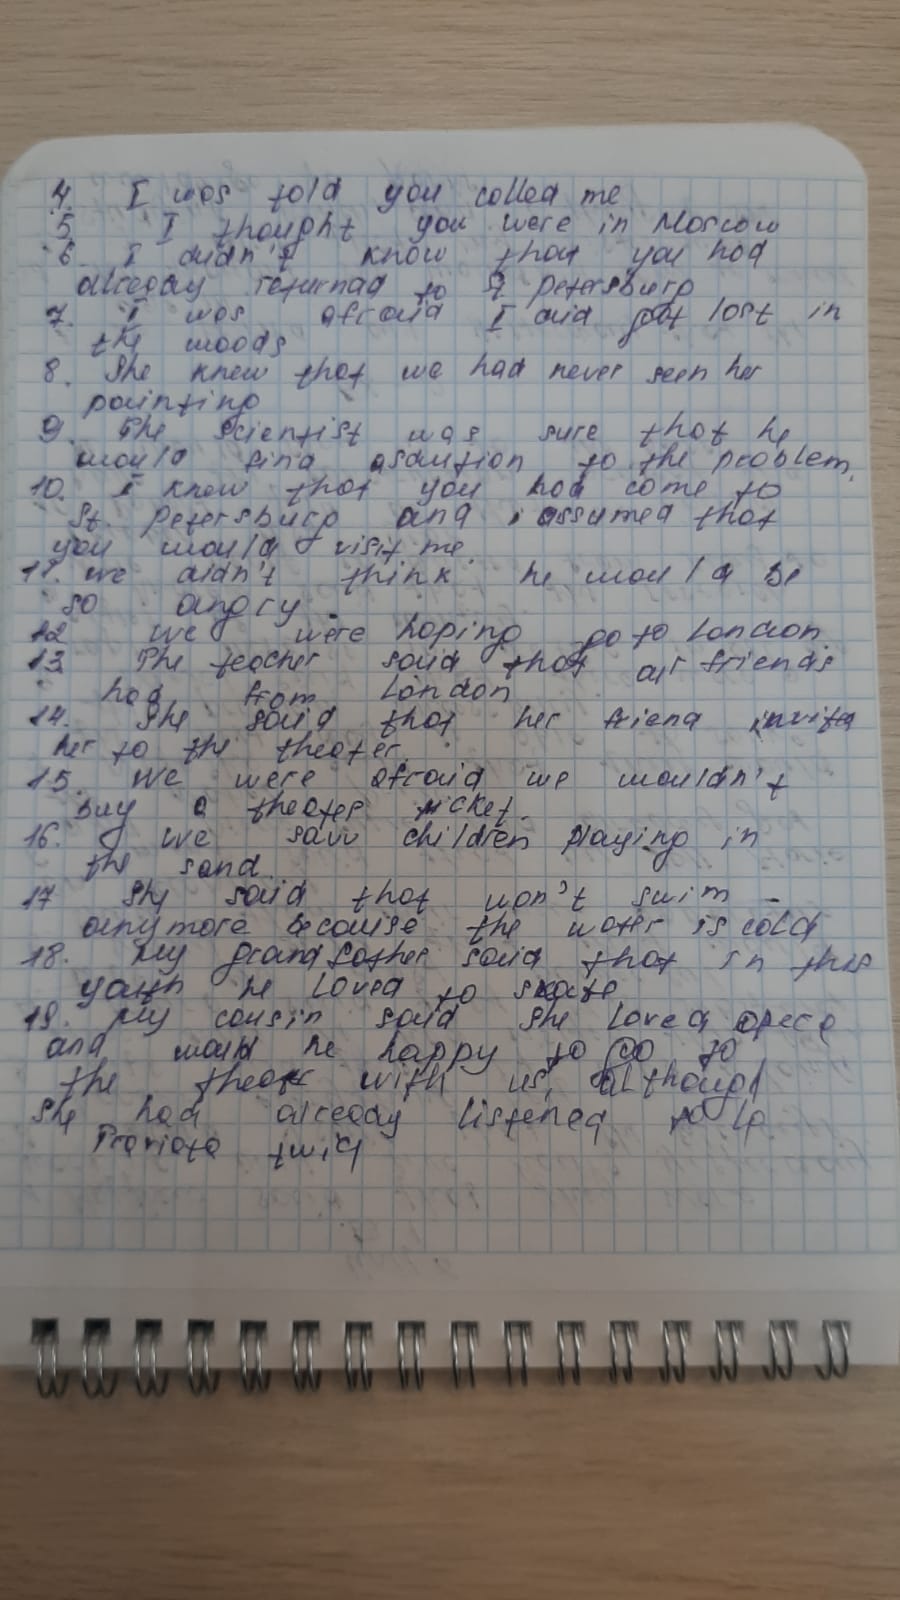 4. I was told you called me
5 I thought you were in Moscow
6. I didn't know that you had
already returnad to St petersburg
7. I was afraid I did got lost in
the woods
8. She knew that we had never seen her
painting
9. The scientist was sure that he
would find asolution to the problem.
10. I knew that you had come to
St. petersburg and assumed that
you would visit me.
11. We didn't think he would be
so angry.
12 We were hoping go to London
13 The teacher said that our friends
had from London
14. She said that her friend invita
her to the theater.
15. We were afraid we wouldn't
buy a theater ticket.
16. We saw children playing in
the sand.
17 She said that won't swim
anymore because the water is cold
18. My grandfather said that in this
youth he loved to skate
19. My cousin said she loved opera
and would he happy to go to
the theatr with us, although
she had already listened to la
Traviata